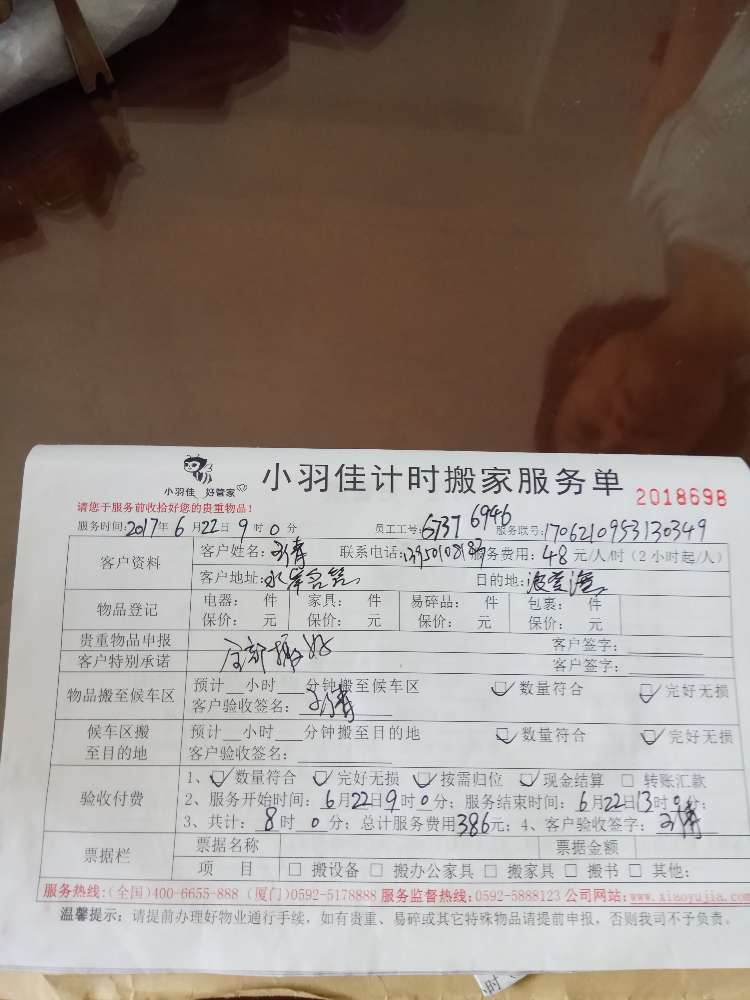 小羽佳 好管家
小羽佳计时搬家服务单
2018698
请您于服务前收拾好您的贵重物品!
服务时间:2017年6月22日9时0分 员工工号:6737 6946 服务联号:1706210953130349
客户资料
客户姓名: 联系电话: 服务费用:48元/人/时(2小时起/人)
客户地址: 目的地:
物品登记
电器: 件 家具: 件 易碎品: 件 包裹: 件
保价: 元 保价: 元 保价: 元 保价: 元
贵重物品申报 客户签字:
客户特别承诺 全部搬好 客户签字:
物品搬至候车区
预计__小时___分钟搬至候车区 数量符合 完好无损
客户验收签名:
候车区搬
至目的地
预计__小时___分钟搬至目的地 数量符合 完好无损
客户验收签名:
验收付费
1、数量符合 完好无损 按需归位 现金结算 □ 转账汇款
2、服务开始时间:6月22日9时0分;服务结束时间:6月22日13时0分;
3、共计:8时0分;总计服务费用386元;4、客户验收签字:
票据栏
票据名称 票据金额
项 目 □ 搬设备 □ 搬办公家具 □ 搬家具 □ 搬书 □ 其他:
服务热线:(全国)400-6655-888 (厦门)0592-5178888 服务监督热线:0592-5888123 公司网站:www.xiaoyujia.com
温馨提示:请提前办理好物业通行手续,如有贵重、易碎或其它特殊物品请提前申报,否则我司不予负责。